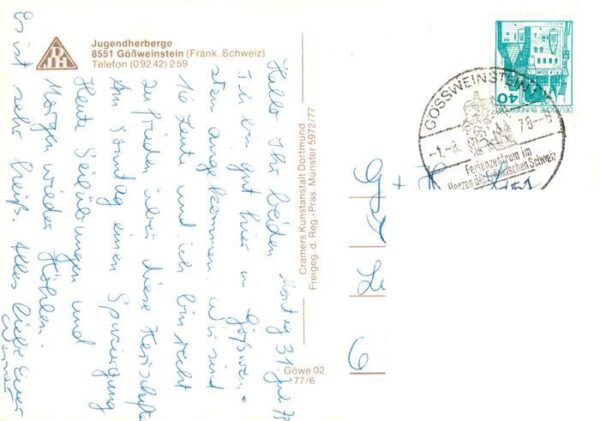 Jugendherberge
8551 Gößweinstein (Fränk. Schweiz)
Telefon (0 92 42) 2 59
Montag 31. Juli 78
Hallo Ihr beiden
Ich bin gut hier in Gößwein=
stein angekommen. Wir sind
16 Leute und ich bin recht
zufrieden über diese
Am Sonntag einen Spaziergang
Heute Seilübungen und
Morgen wieder Höhlen.
Es ist sehr heiß. Alles Liebe Euer
Werner
Cramers Kunstanstalt Dortmund
Freigeg. d. Reg.-Präs. Münster 5972/77
Göwe 02
77/6
GOSSWEINSTEIN
-1.-8. 78
Ferienzentrum im
Herzen der Fränkischen Schweiz
40
G
+
L
6